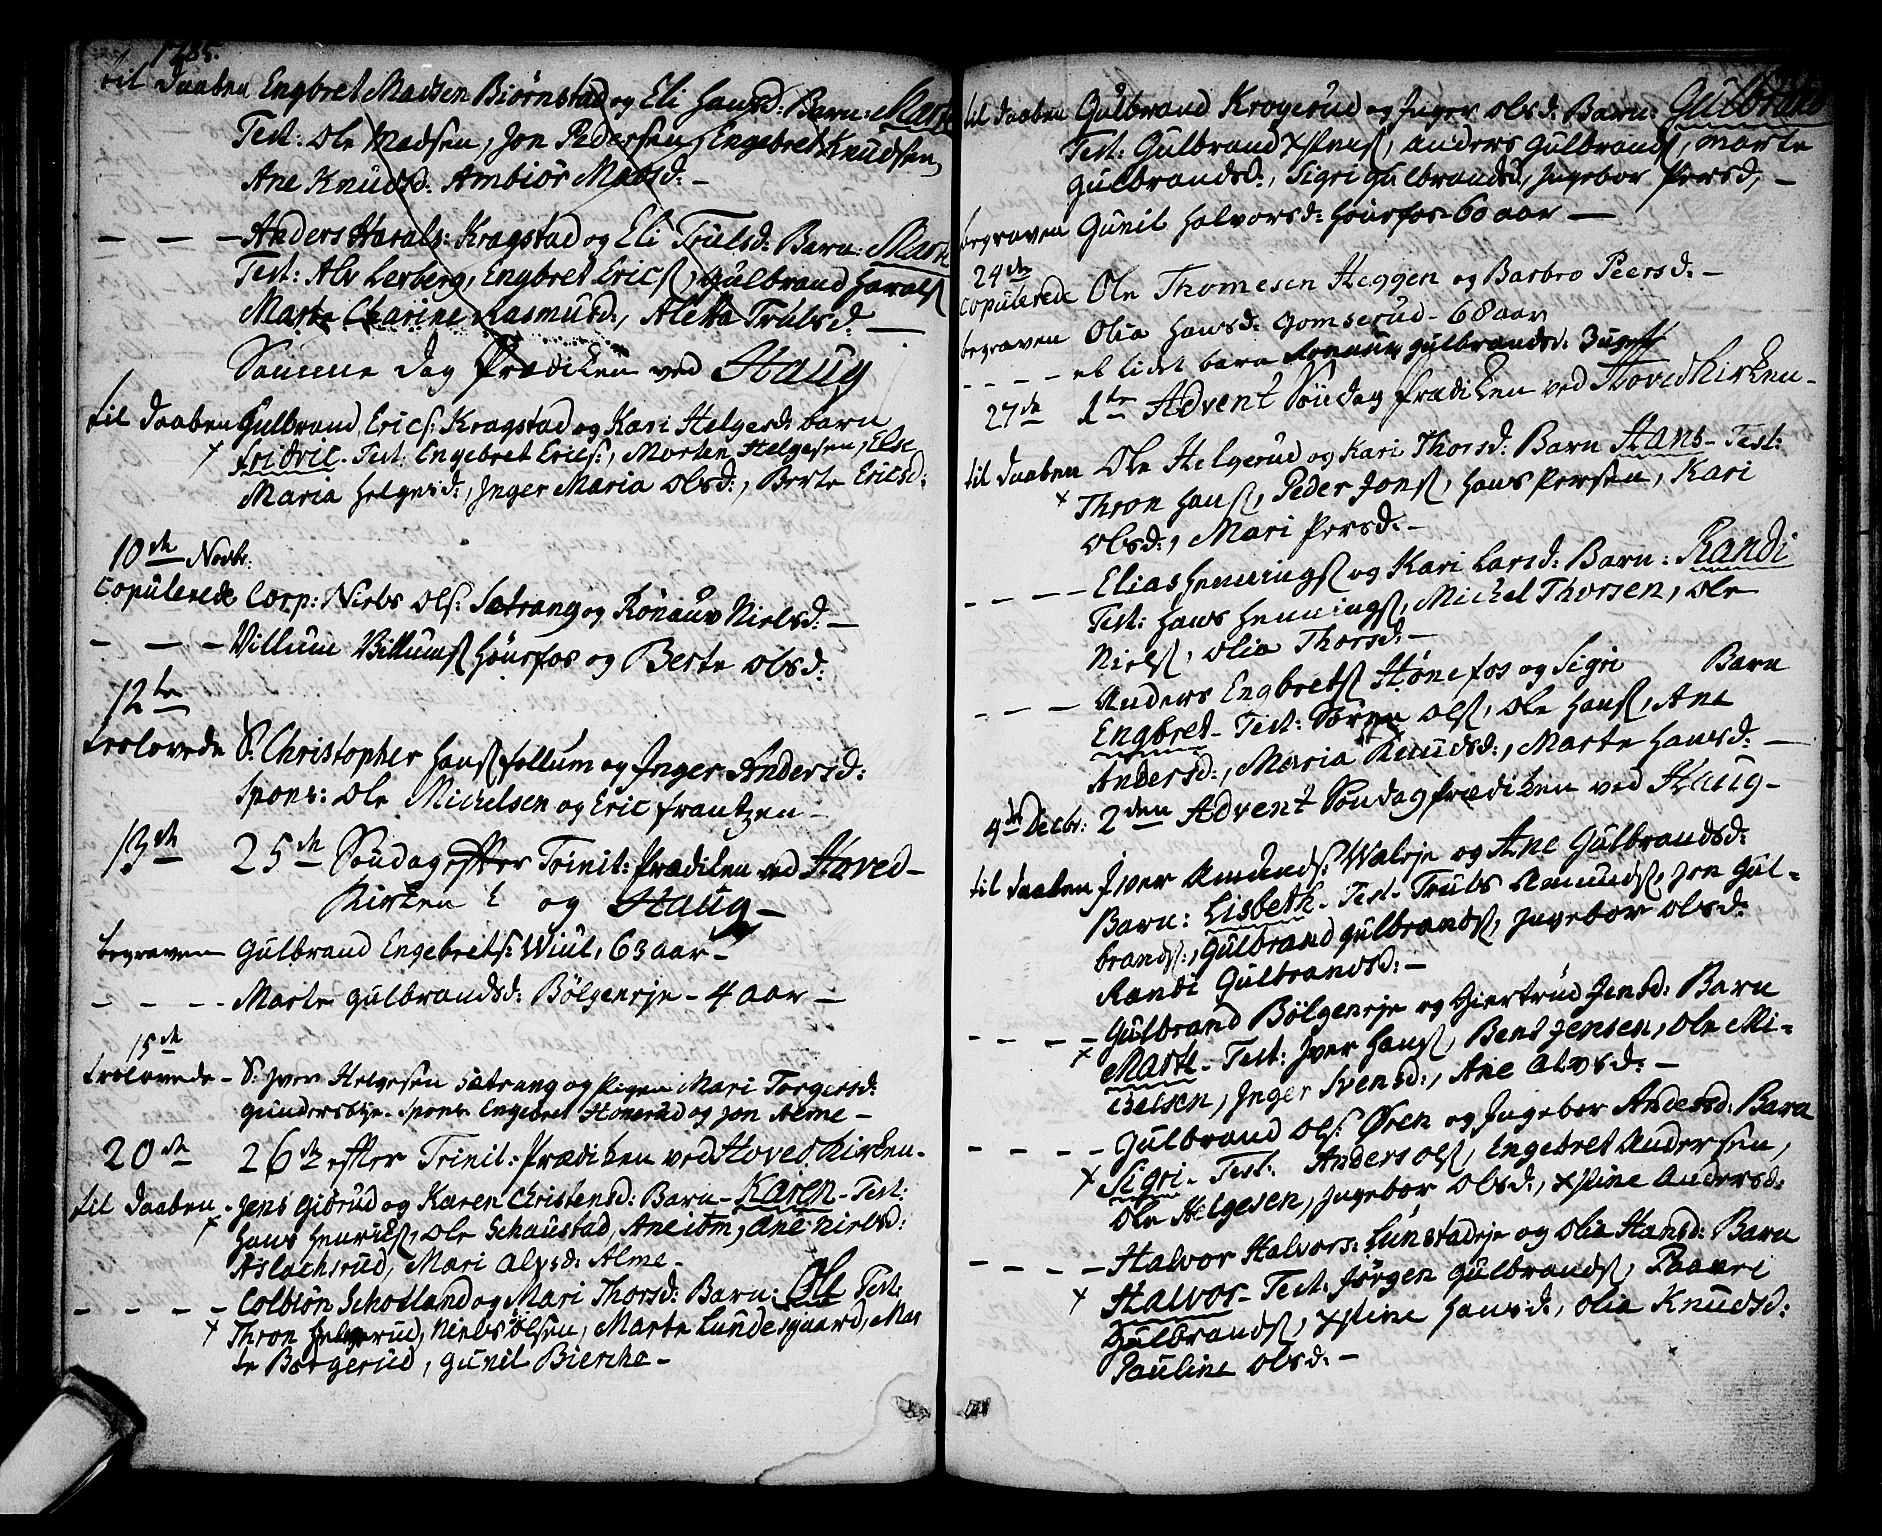 1785.
til Daaben Engbret Madsen Biørnstad og Eli Hansd: Barn: Marte
Test: Ole Madsen, Jon Pedersen, Engebret Knudsen,
Ane Knudsd: Ambiør Madsd: –
– – – Anders Harals: Kragstad og Eli Trulsd: Barn: Marte
Test: Alv Lerberg, Engbret Erics, Gulbrand Harals
Marte Charine Rasmusd:, Aletta Trulsd: –
Samme Dag Prædiken ved Haug
til Daaben Gulbrand Erics: Kragstad og Kari Helgesd: barn
+ Fridric – Test: Engebret Erics:, Morten Helgesen, Else
Maria Helgesd:, Inger Maria Olsd:, Berte Ericsd:
10de Novbr:
Copulerede Corp: Niels Ols: Sætrang og Rønauv Nielsd: –
– – – Villum Villums Hønsfos og Berte Olsd:
12te
trolovede S: Christopher Hans follum og Inger Andersd:
Spons: Ole Michelsen og Eric frantzen –
13de 25de Søndag efter Trinit: Prædiken ved Hoved–
Kirken og Haug –
begraven Gulbrand Engebrets: Wiul, 63 aar –
– – – Marte Gulbrandsd: Bølgeneje – 4 aar –
15de
trolovede – S: Iver Helgesen Sætrang og Pigen Mari Torgersd:
Gundersbye – Spons: Engebret Honerud og Jon Alme –
20de 26de efter Trinit: Prædiken ved HovedKirken –
til Daaben – Jens Gidrud og Karen Christensd: Barn – Karen – Test:
+ Hans Henrics, Ole Schaustad, Ane ibm, Ane Nielsd:
Aslachsrud, Mari Alvsd: Alme –
– – – – Colbiøn Schotland og Mari Thorsd: Barn: Ole Test:
+ Thron Helgerud, Niels Olsen, Marte Lundesgaard, Mar
te Borgerud, Gunil Bierche –
til Daaben Gulbrand Krogerud og Inger Olsd: Barn: Gulbrand
Test: Gulbrand Xstens, Anders Gulbrands, Marte
Gulbrandsd:, Sigri Gulbrandsd, Ingebor Persd, –
begraven Gunil Halvorsd: Hønsfos 60 aar –
24de
Copulerede Ole Thomesen Heggen og Barbro Peersd: –
begraven Olia Hansd: Gomserud – 68 aar
– – – – et lidet barn Rønauv Gulbrandsd: 3 uger
27de 1te Advent Søndag Prædiken ved HovedKirken –
til Daaben Ole Helgerud og Kari Thorsd: Barn Hans – Test:
+ Thron Hans, Peder Jons, Hans Persen, Kari
Olsd:, Mari Persd: –
– – – – Elias Hennings og Kari Larsd: Barn: Randi
Test: Hans Hennings, Michel Thorsen, Ole
Niels, Olia Thorsd: –
– – – Anders Engbrets Hønefos og Sigri Barn
Engbret – Test: Søren Ols, Ole Hans, Ane
Andersd:, Maria Knudsd:, Marte Hansd: –
4de Decbr: 2den Advent Søndag Prædiken ved Haug –
til Daaben Iver Amunds: Wæleje og Ane Gulbrandsd:
Barn: Lisbeth – Test – Truls Amunds, Jon Gul–
brands:, Gulbrand Gulbrands, Ingebor Olsd:
Randi Gulbrandsd: –
– – – – Gulbrand Bølgeneje og Giertrud Jensd: Barn
+ Marte – Test: Iver Hans, Bent Jensen, Ole Mi–
chelsen, Inger Svensd:, Ane Alvsd: –
– – – – Gulbrand Ols: Øren og Ingebor Andersd: Barn
+ Sigri – Test: Anders Ols, Engebret Andersen,
Ole Helgesen, Ingebor Olsd:, Xstine Andersd:
– – – – Halvor Halvors: Lunstadeje og Olia Hansd: Barn
+ Halvor – Test: Jørgen Gulbrands, Paavri
Gulbrands, Xstine Hansd:, Olia Knudsd:
Pauline Olsd: –